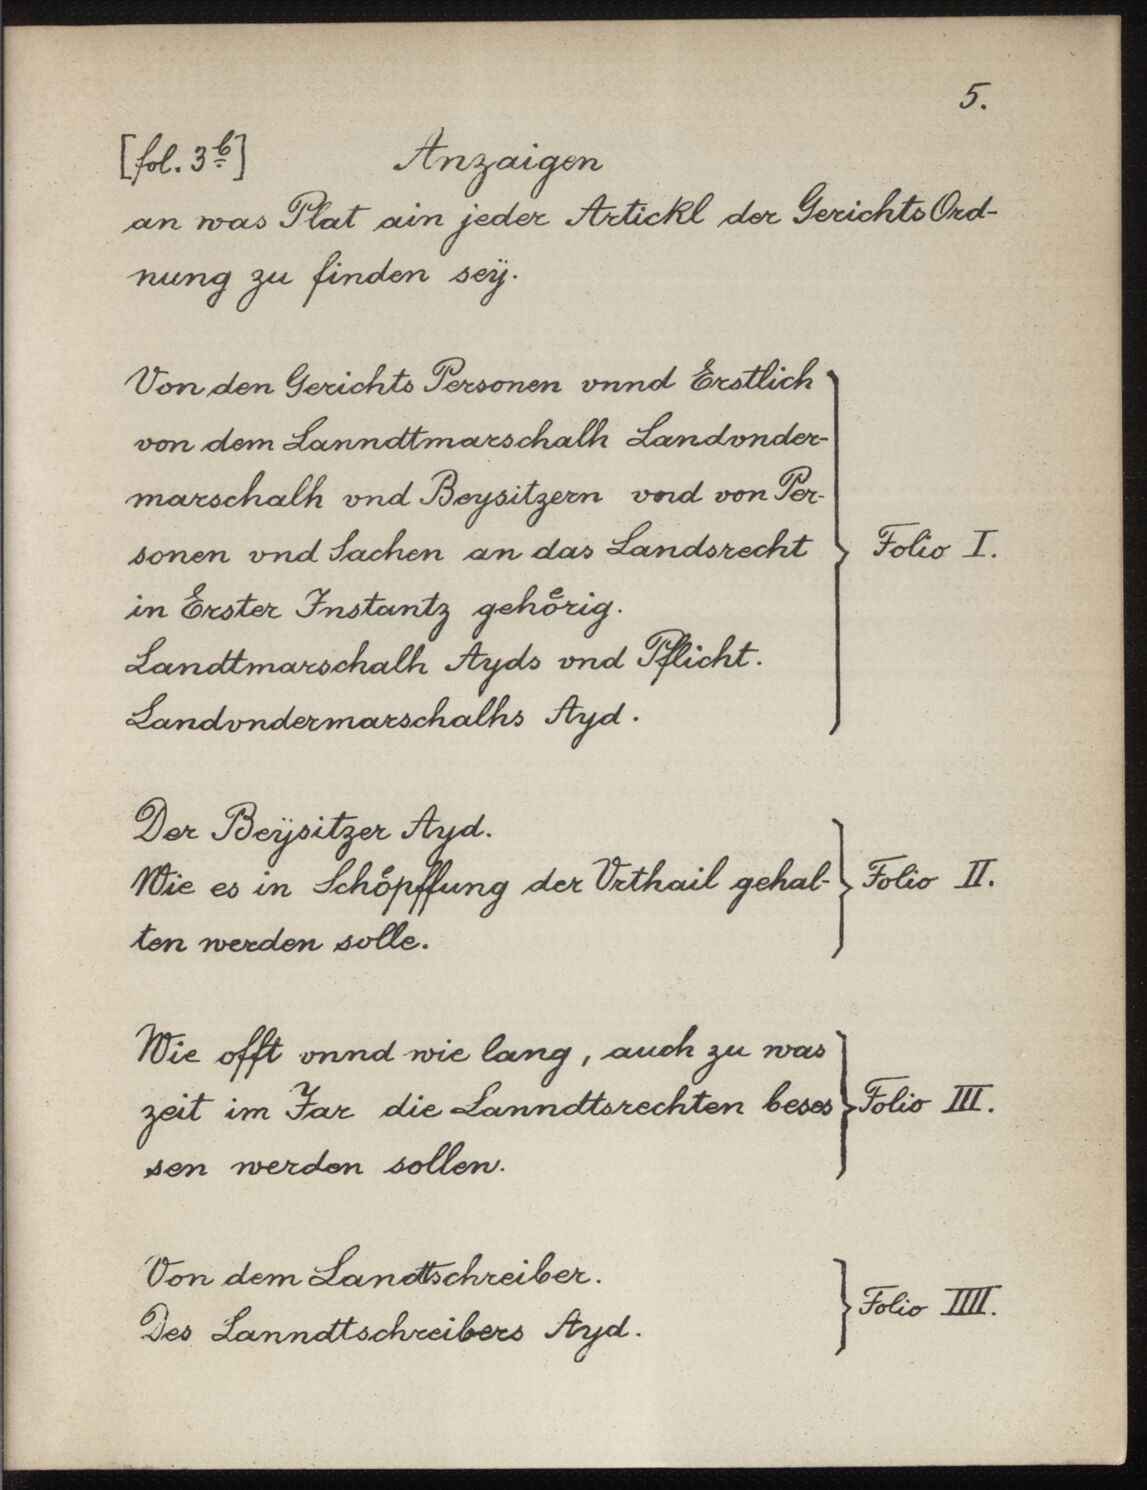 5.
[fol. 3b] Anzaigen
an was Plat ain jeder Artickl der Gerichts Ord-
nung zu finden seÿ.
Von den Gerichts Personen vnnd Erstlich
von dem Lanndtmarschalh Landvnder-
marschalh vnd Beysitzern vnd von Per-
sonen vnd Sachen an das Landsrecht
in Erster Instantz gehoͤrig.
Landtmarschalh Ayds vnd Pflicht.
Landvndermarschalhs Ayd.
Folio I.
Der Beÿsitzer Ayd.
Wie es in Schoͤpffung der Vrthail gehal-
ten werden solle.
Folio II.
Wie offt vnnd wie lang, auch zu was
zeit im Jar die Lanndtsrechten beses
sen werden sollen.
Folio III.
Von dem Landtschreiber.
Des Lanndtschreibers Ayd.
Folio IIII.